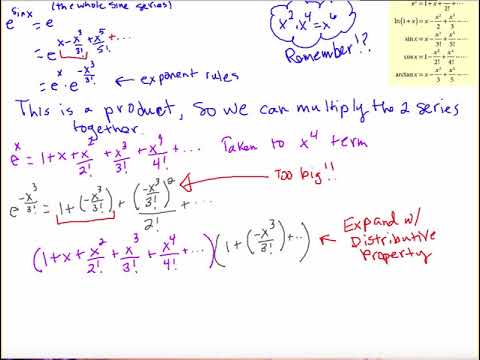 e^{sin x} = e^{(the whole sine series)}
= e^{x - x^3/3! + x^5/5! + ...}
= e^x · e^{-x^3/3!} ← exponent rules
x^2 · x^4 = x^6
Remember!?
ln(1+x) = x - x^2/2 + x^3/3 ...
sin x = x - x^3/3! + x^5/5! ...
cos x = 1 - x^2/2! + x^4/4! ...
arctan x = x - x^3/3 + x^5/5 ...
This is a product, so we can multiply the 2 series
together.
e^x = 1 + x + x^2/2! + x^3/3! + x^4/4! + ... Taken to x^4 term
e^{-x^3/3!} = 1 + (-x^3/3!) + (-x^3/3!)^2/2! + ... Too big!!
(1 + x + x^2/2! + x^3/3! + x^4/4! + ...)(1 + (-x^3/3!) + ...) ← Expand w/
Distributive
Property